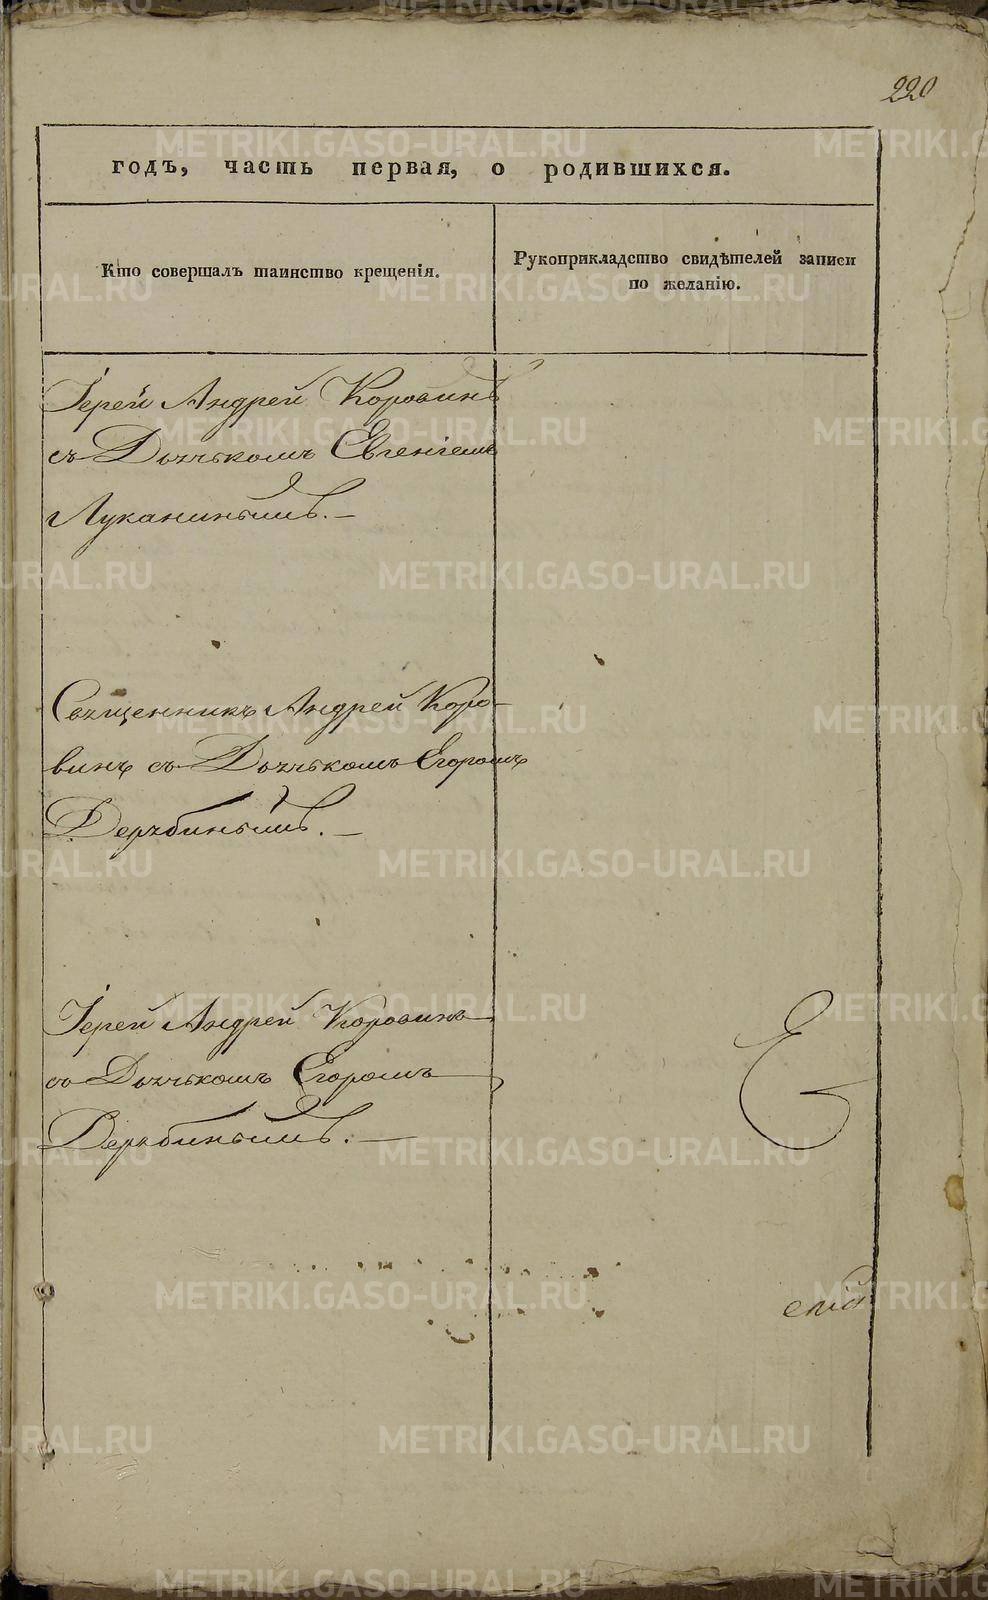 220
годъ, часть первая, о родившихся.
Кто совершалъ таинство крещенія.
Рукоприкладство свидѣтелей записи
по желанію.
Іерей Андрей Коровинъ
съ Дьячькомъ Евгеніемъ
Луканинымъ.—
Священникъ Андрей Коро-
винъ съ Дьячькомъ Егоромъ
Дерябинымъ.—
Іерей Андрей Коровинъ
съ Дьячькомъ Егоромъ
Дерябинымъ.—
Е
METRIKI.GASO-URAL.RU